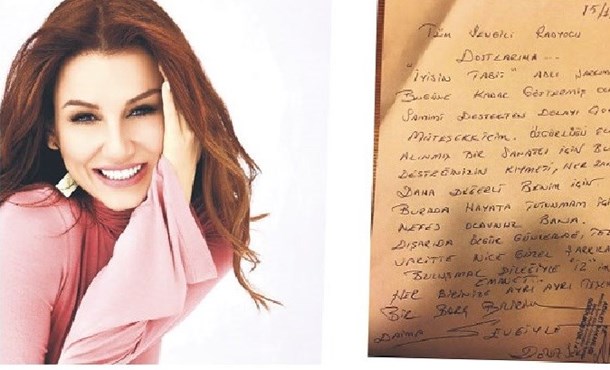 15/1
Tüm Sevgili Radyocu
Dostlarıma...
"İyisin Tabii" adlı şarkım
Bugüne kadar göstermiş ol
Samimi destekten dolayı
Müteşekkirim. Özgürlüğü el
Alınmış bir sanatçı için bu
Desteğinizin kıymeti, her za
Daha değerli benim için
Burada hayata tutunmam iç
Nefes oldunuz bana.
Dışarıda özgür günlerde,
Vakitte nice güzel şarkıla
Buluşmak dileğiyle "İZ"
emanet!
Her birinize ayrı ayrı teşek
Bir Borç Bilirim
Daima Sevgiyle